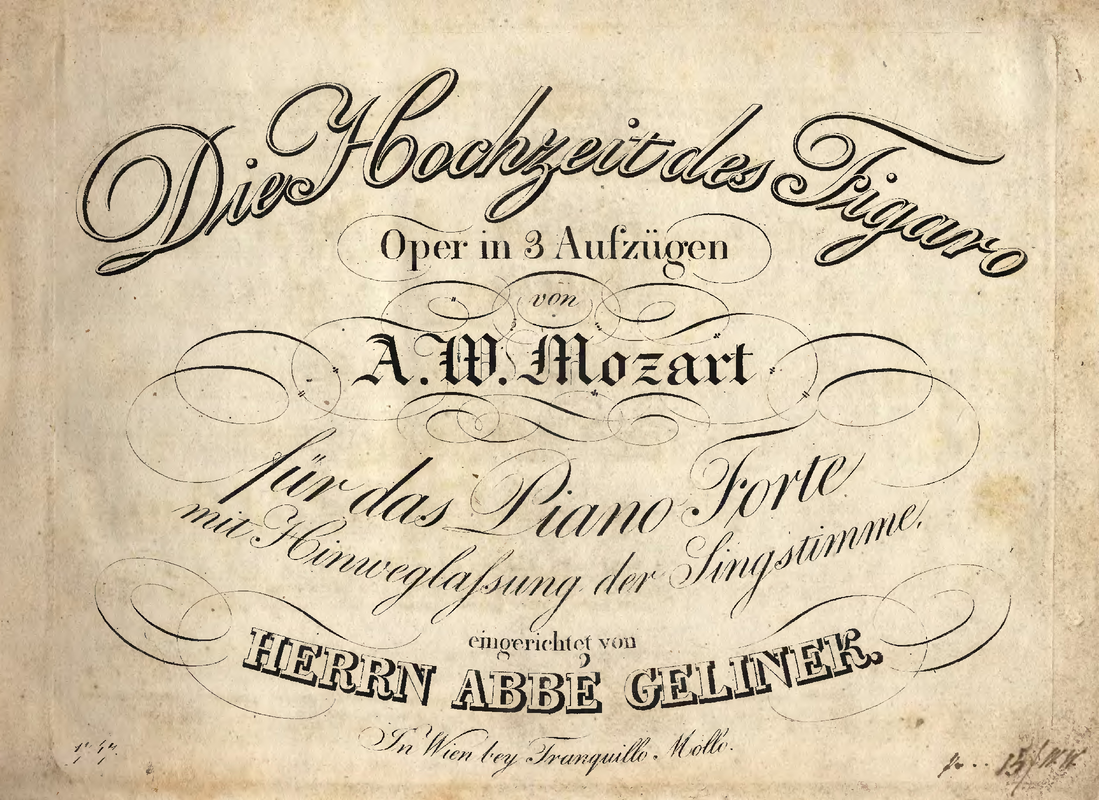 Die Hochzeit des Figaro
Oper in 3 Aufzügen
von
A. W. Mozart
für das Piano Forte
mit Hinweglaſsung der Singstimme,
eingerichtet von
HERRN ABBÉ GELINEK.
In Wien bey Tranquillo Mollo.